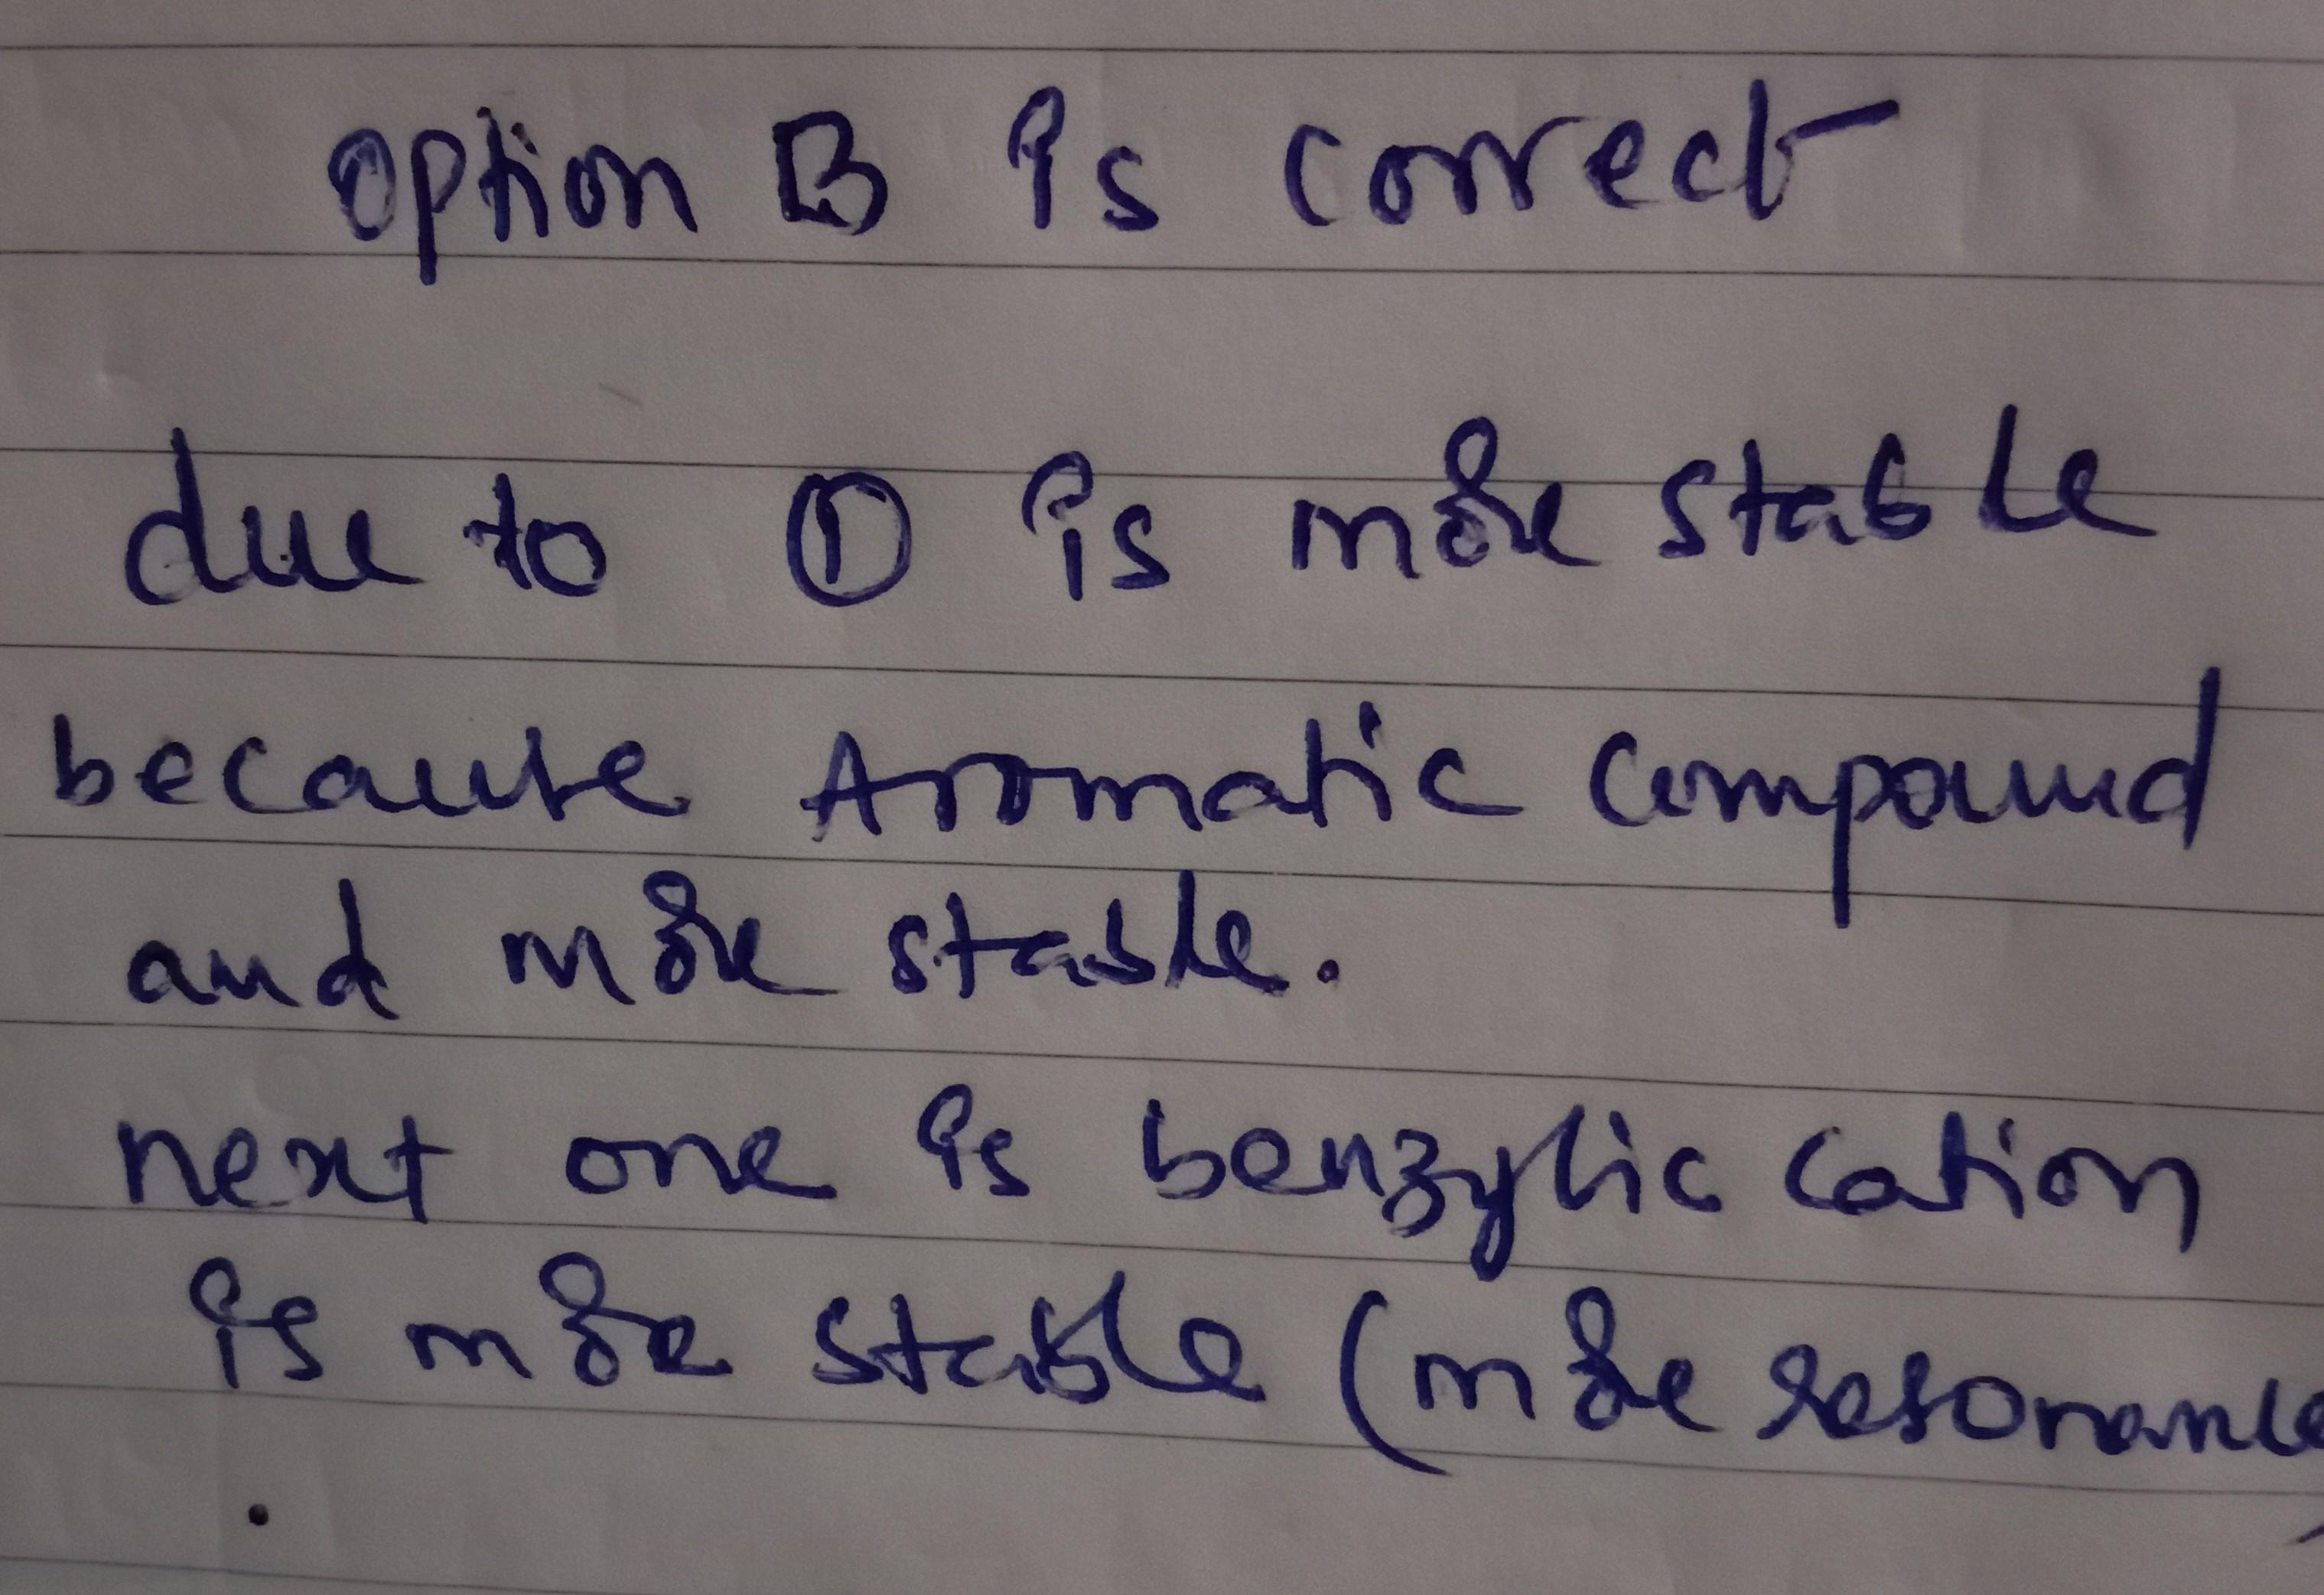 option B is correct
due to ① is more stable
because Aromatic compound
and more stable.
next one is benzylic cation
is more stable (more resonance